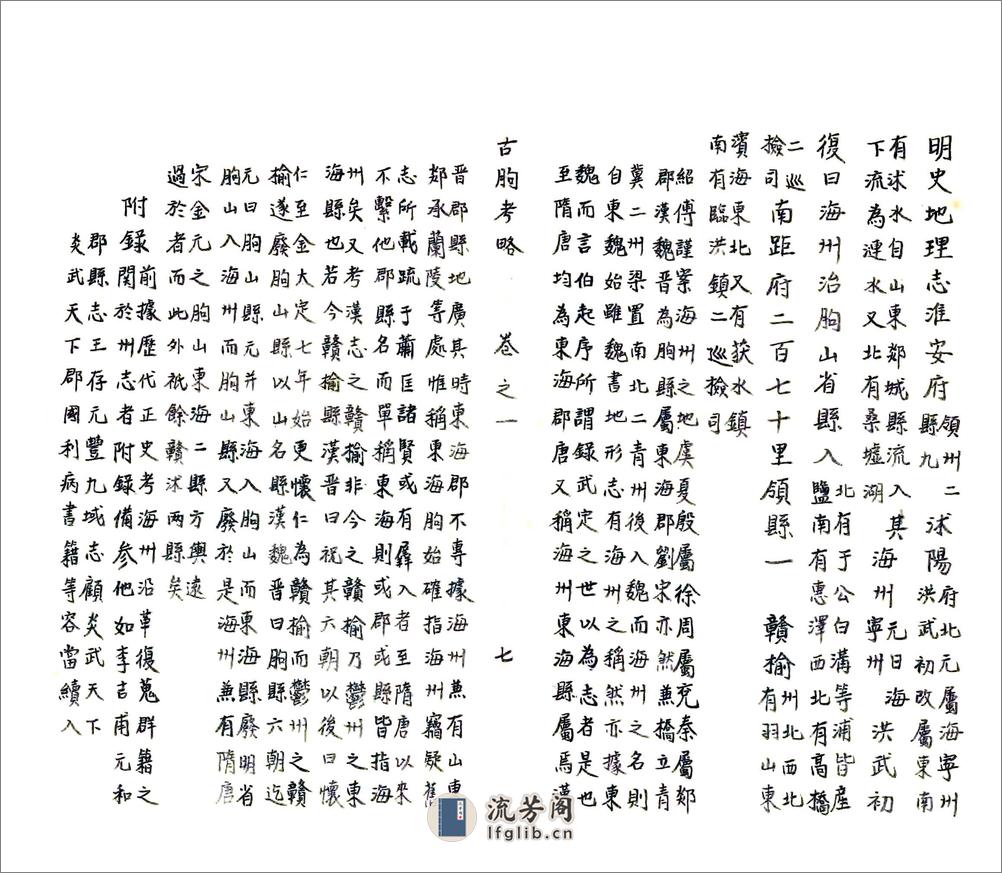 明史地理志淮安府領州二縣九沭陽府北元屬海寧州洪武初改屬東南
有沭水自山東郯城縣流入其下流為漣水又北有桑墟湖海州元曰海寧州洪武初
復曰海州治朐山省縣入北有于公白溝等浦皆產鹽南有惠澤西北有高橋
二巡撿司南距府二百七十里領縣一贛榆州北西北有羽山東
濱海東北又有荻水鎮
南有臨洪鎮二巡撿司
紹傅謹案海州之地虞夏殷屬徐周屬兗秦屬郯
郡漢魏晉為朐縣屬東海郡劉宋亦然兼橋立青
冀二州梁置南北二青州後入魏而海州之名則
自東魏始雖魏書地形志有海州之稱然亦據東
魏而言伯起序所謂錄武定之世以為志者是也
至隋唐均為東海郡唐又稱海州東海縣屬焉漢
古朐考略 卷之一 七
晉郡縣地廣其時東海郡不專據海州兼有山東
郯承蘭陵等處惟稱東海朐始確指海州竊疑舊
志所載疏于蕭匡諸賢或有羼入者至隋唐以來
不繫他郡縣名而單稱東海則或郡或縣皆指海
州矣又考漢志之贛榆非今之贛榆乃鬱州之東
海縣也若今贛榆縣漢晉曰祝其六朝以後曰懷
仁至金大定七年始更懷仁為贛榆而鬱州之贛
榆遂廢朐山縣以山名縣漢魏晉曰朐縣六朝迄
元曰朐山縣元并東海入朐山而東海縣廢明省
朐山入海州而朐山縣又廢於是海州兼有隋唐
宋金元之朐山東海二縣方輿遠
過於者而此外祇餘贛沭兩縣矣
附錄前據歷代正史考海州沿革復蒐群籍之
關於州志者附錄備參他如李吉甫元和
郡縣志王存元豐九域志顧炎武天下
炎武天下郡國利病書籍等容當續入
流芳阁
lfglib.cn